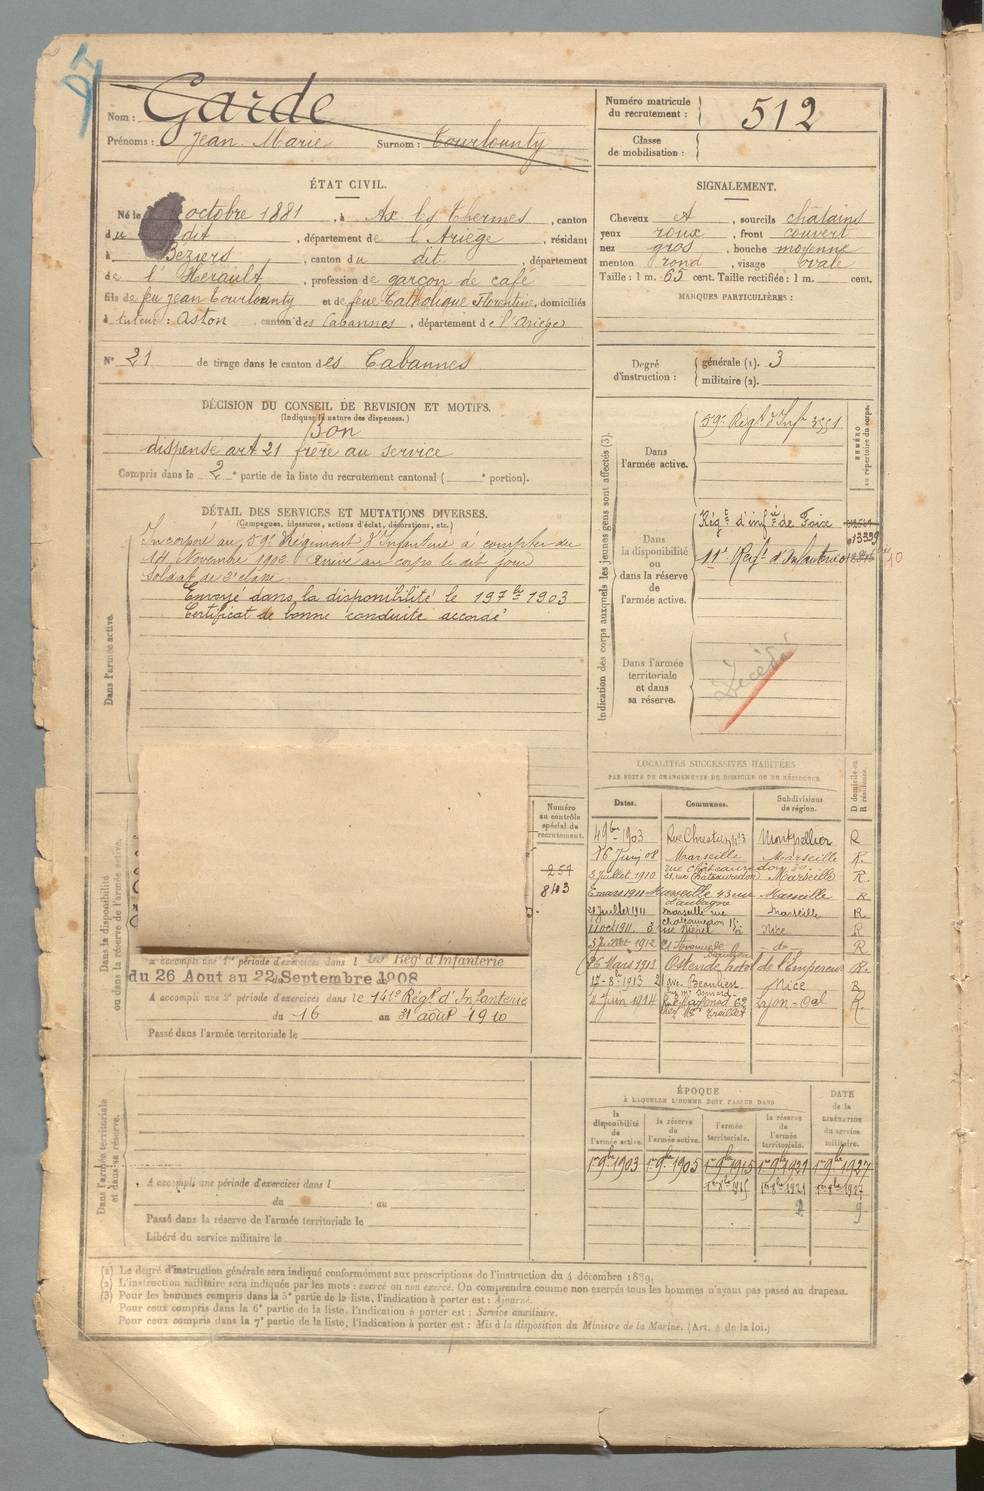 Nom : Garde
Prénoms : Jean Marie Surnom : Tourlounty
Numéro matricule du recrutement : 512
Classe de mobilisation :
ÉTAT CIVIL.
Né le octobre 1881, à Ax les Thermes, canton
du dit, département de l'Ariège, résidant
à Béziers, canton du dit, département
de l'Hérault, profession de garçon de café
fils de feu Jean Tourlounty et de feue Catholique Florentine, domiciliés
à tuteur : Aston, canton des Cabannes, département de l'Ariège
N° 21 de tirage dans le canton des Cabannes
SIGNALEMENT.
Cheveux et, sourcils châtains
yeux roux, front couvert
nez gros, bouche moyenne
menton rond, visage ovale
Taille : 1 m. 65 cent. Taille rectifiée : 1 m. cent.
MARQUES PARTICULIÈRES :
Degré d'instruction : générale (1). 3
militaire (2).
DÉCISION DU CONSEIL DE REVISION ET MOTIFS.
(Indiquer la nature des dispenses.)
Bon
dispensé art 21 frère au service
Compris dans la 2e partie de la liste du recrutement cantonal ( e portion).
DÉTAIL DES SERVICES ET MUTATIONS DIVERSES.
(Campagnes, blessures, actions d'éclat, décorations, etc.)
Dans l'armée active.
Incorporé au 59e Régiment d'Infanterie à compter du
14 Novembre 1902. Arrivé au corps le dit jour
soldat de 2e classe
Envoyé dans la disponibilité le 19 7bre 1903
Certificat de bonne conduite accordé
Indication des corps auxquels les jeunes gens sont affectés (3).
NUMÉRO au répertoire du corps.
Dans l'armée active.
59e Régt d'Infie 3551
Dans la disponibilité ou dans la réserve de l'armée active.
Régt d'infie de Foix
13339
11e Regt d'Infanterie
10
Dans l'armée territoriale et dans sa réserve.
Décédé
Dans la disponibilité ou dans la réserve de l'armée active.
Numéro au contrôle spécial de recrutement.
254
843
A accompli une 1re période d'exercices dans l Régt d'Infanterie
du 26 Aout au 22 Septembre 1908
A accompli une 2e période d'exercices dans le 141e Régt d'Infanterie
du 16 au 31 août 1910
Passé dans l'armée territoriale le
LOCALITÉS SUCCESSIVES HABITÉES
PAR SUITE DE CHANGEMENTS DE DOMICILE OU DE RÉSIDENCE.
Dates. Communes. Subdivisions de région. D domicile ou R résidence.
4 9bre 1903 Rue Chrestien n°3 Montpellier R
16 Juin 08 Marseille Marseille R.
5 Juillet 1910 rue Chateauredon Marseille R.
6 mars 1911 Marseille 43 rue d'aubagne Marseille R
21 Juillet 1911 Marseille rue chateauredon Marseille R
11 oct 1911 Nice R
5 Juillet 1912 - do - R
26 Mars 1913 Ostende hotel de l'Empereur R.
17-8-1913 Beaulieu Nice R
4 Juin 1914 Lyon-Cal R.
Dans l'armée territoriale et dans sa réserve.
A accompli une période d'exercices dans l
du au
Passé dans la réserve de l'armée territoriale le
Libéré du service militaire le
ÉPOQUE
À LAQUELLE L'HOMME DOIT PASSER DANS
DATE de la LIBÉRATION du service militaire.
la disponibilité de l'armée active. la réserve de l'armée active. l'armée territoriale. la réserve de l'armée territoriale.
1er 9bre 1903 1er 9bre 1905 1er 9bre 1915 1er 9bre 1921 1er 9bre 1927
1er 8bre 1915 1er 8bre 1921 1er 8bre 1927
(1) Le degré d'instruction générale sera indiqué conformément aux prescriptions de l'instruction du 4 décembre 1889.
(2) L'instruction militaire sera indiquée par les mots : exercé ou non exercé. On comprendra comme non exercés tous les hommes n'ayant pas passé au drapeau.
(3) Pour les hommes compris dans la 5e partie de la liste, l'indication à porter est : Ajourné.
Pour ceux compris dans la 6e partie de la liste, l'indication à porter est : Service auxiliaire.
Pour ceux compris dans la 7e partie de la liste, l'indication à porter est : Mis à la disposition du Ministre de la Marine. (Art. 4 de la loi.)